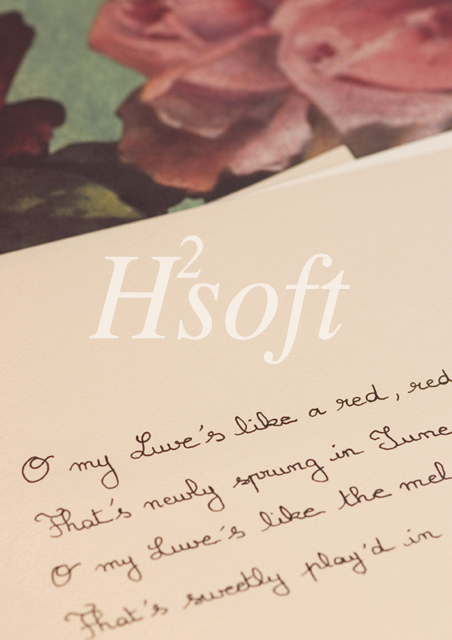 H²soft
O my Luve's like a red, red
That's newly sprung in June
O my Luve's like the mel
That's sweetly play'd in